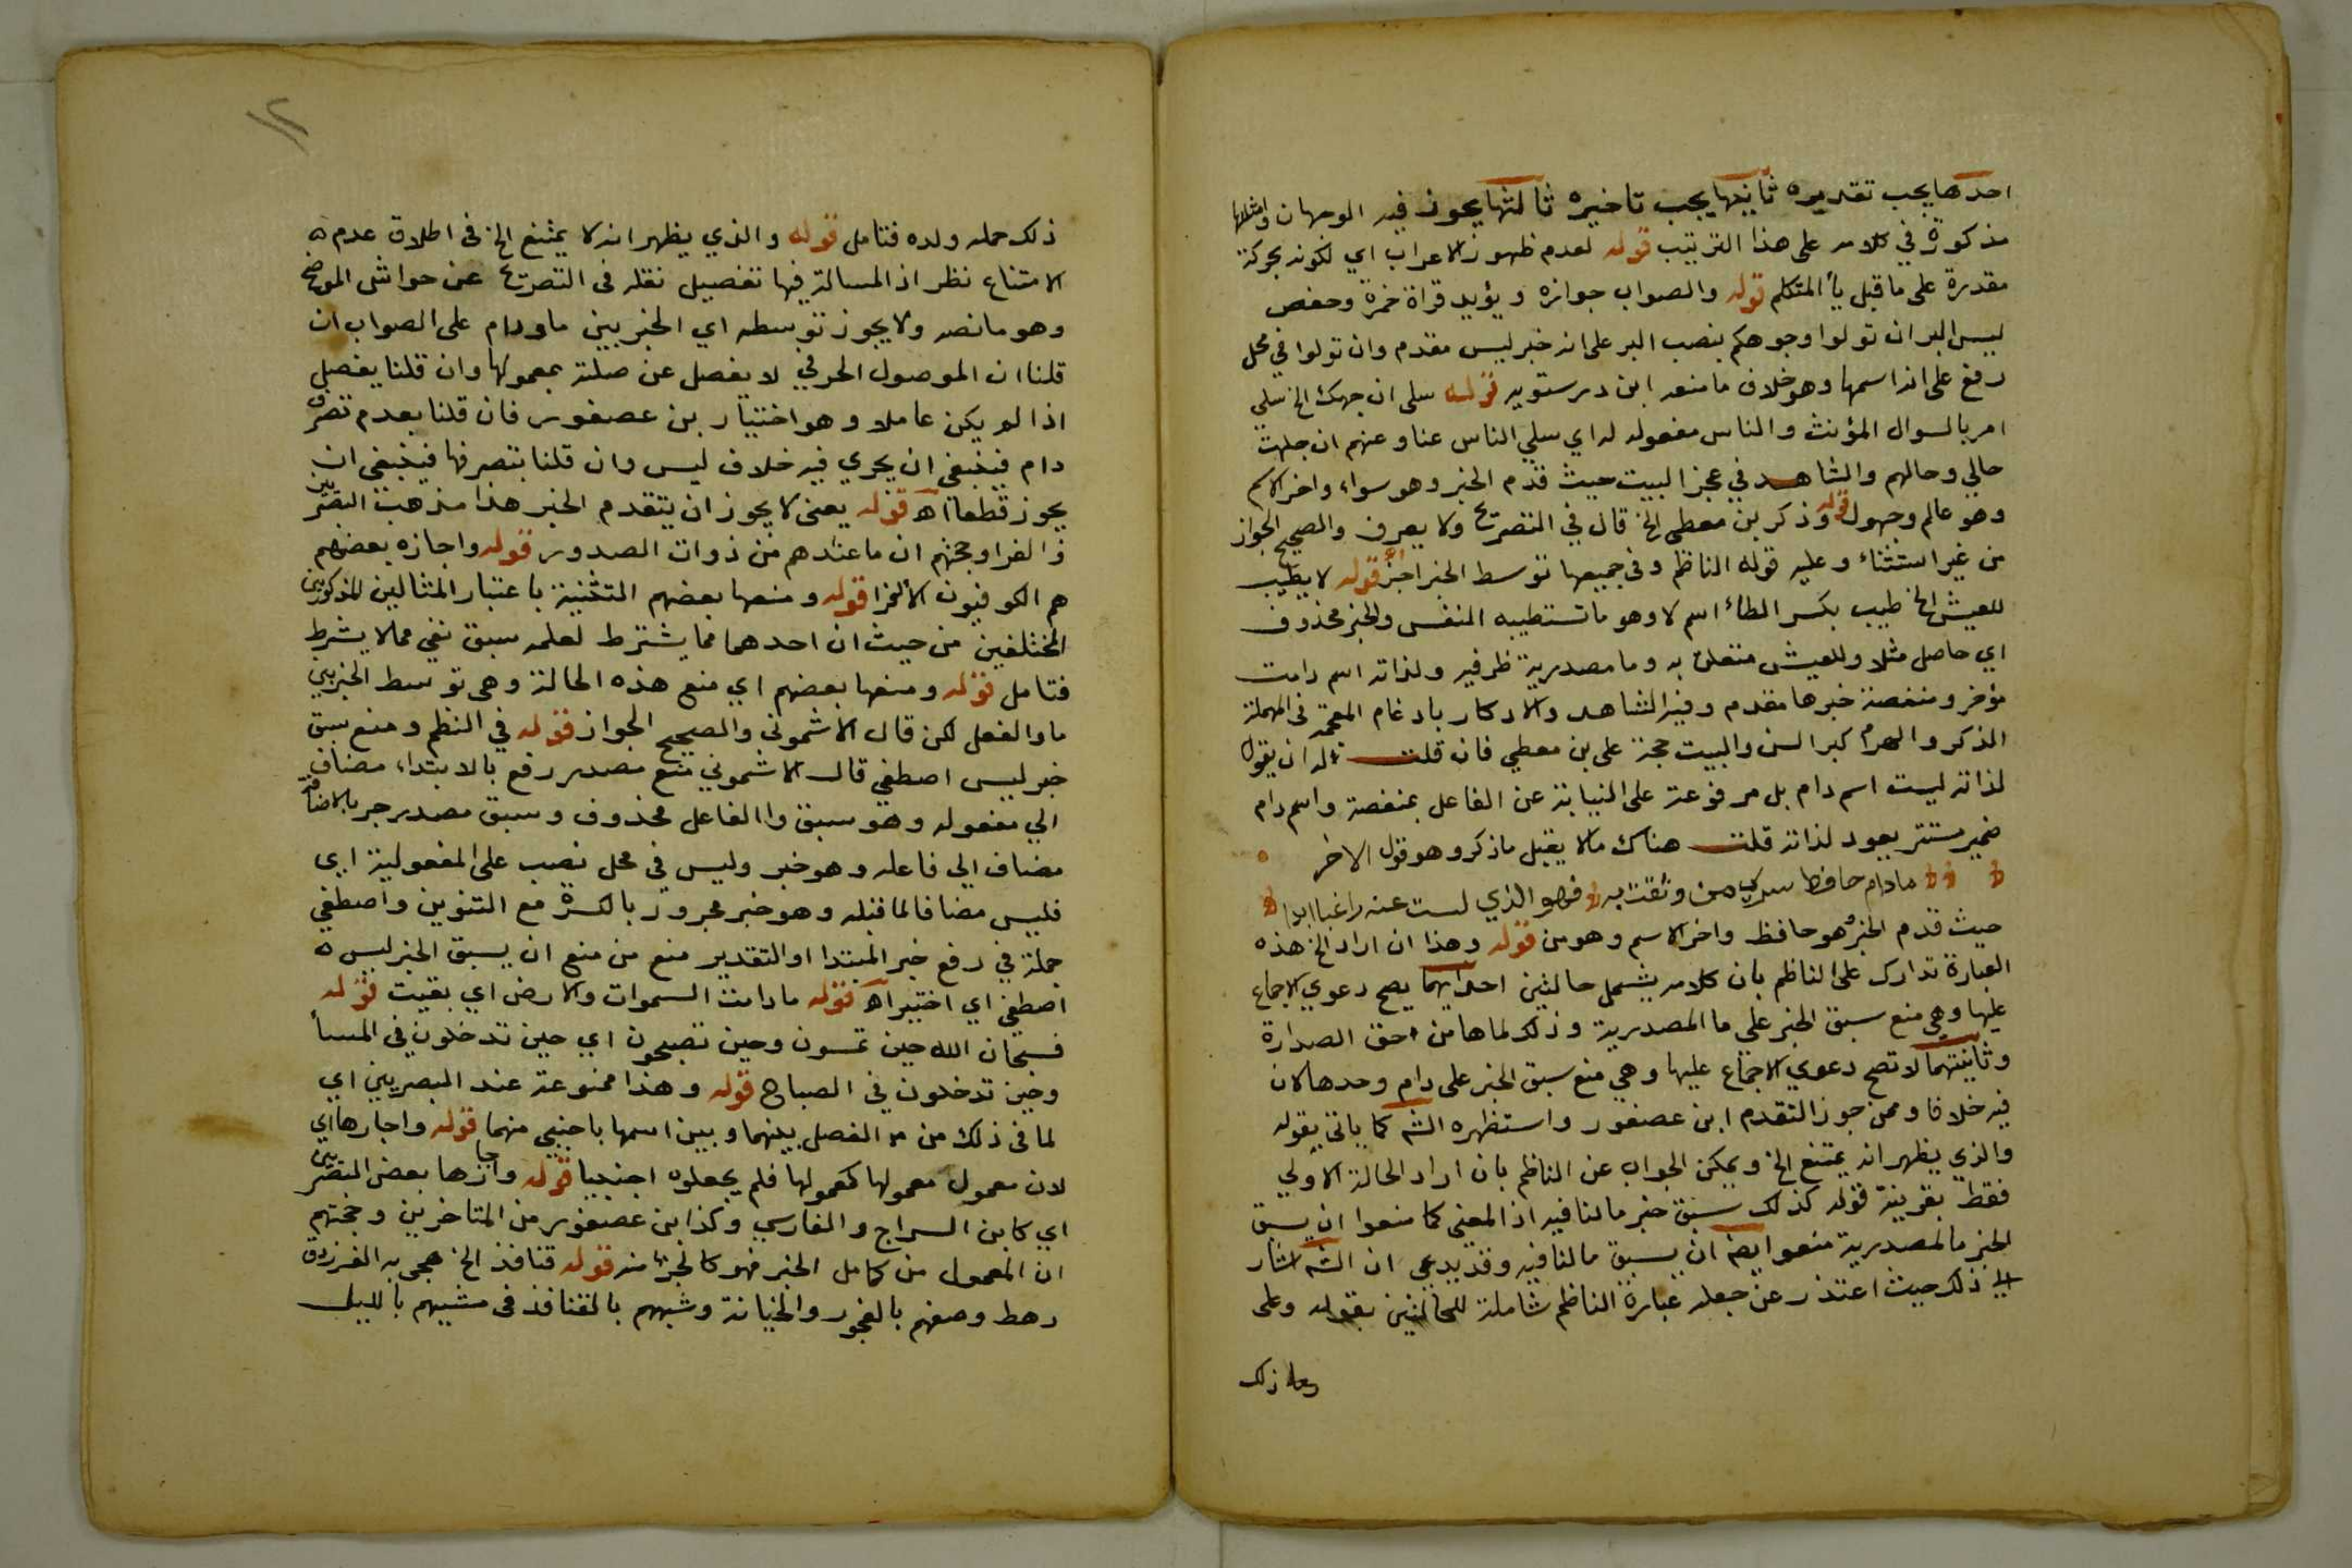 احدها يجب تقديمه ثانيها يجب تاخيره ثالثها يجوز فيه الوجهان وامثلتها
مذكورة في كلامه على هذا الترتيب قوله لعدم ظهور الاعراب اي لكونه بحركة
مقدرة على ما قبل يأ المتكلم قوله والصواب جوازه ويؤيد قراة حمزة وحفص
ليس البر ان تولوا وجوهكم بنصب البر على انه خبر ليس مقدم وان تولوا في محل
رفع على انه اسمها وهو خلاف ما منعه ابن درستويه قوله سلي ان جهلت الخ سلي
امر بالسوال المؤنث والناس مفعوله له اي سلي الناس عنا وعنهم ان جهلت
حالي وحالهم والشاهد في عجز البيت حيث قدم الخبر وهو سواء واخر الاسم
وهو عالم وجهول قوله وذكر بن معطى الخ قال في التصريح ولا يعرف والصحيح الجواز
من غير استثناء وعليه قوله الناظم وفي جميعها توسط الخبر اجز قوله لا يطيب
للعيش الخ طيب بكسر الطاء اسم لا وهو ما تستطيبه النفس والخبر محذوف
اي حاصل مثلا وللعيش متعلق به وما مصدرية ظرفيه ولذاته اسم دامت
مؤخر ومنغصة خبرها مقدم وفيه الشاهد والادكار بادغام المعجمة في المهملة
الذكر والهرم كبر السن والبيت حجة على بن معطي فان قلت له ان يقول
لذاته ليست اسم دام بل مرفوعة على النيابة عن الفاعل بمنغصة واسم دام
ضمير مستتر يعود لذاته قلت هناك مالا يقبل ما ذكر وهو قول الاخر
ما دام حافظ سركي من وثقت به فهو الذي لست عنه راغبا ابدا
حيث قدم الخبر وهو حافظ واخر الاسم وهو من قوله وهذا ان اراد الخ هذه
العبارة تدارك على الناظم بان كلامه يشمل حالتين احدايهما يصح دعوي الاجماع
عليها وهي منع سبق الخبر على ما المصدرية وذلك لما ها من حق الصدارة
وثانيتهما لا تصح دعوي الاجماع عليها وهي منع سبق الخبر على دام وحدها لان
فيه خلافا وممن جوز التقدم ابن عصفور واستظهره الشه كما ياتى بقوله
والذي يظهر انه يمتنع الخ ويمكن الجواب عن الناظم بان اراد الحالة الاولي
فقط بقرينة قوله كذلك سبق خبر ما النافيه اذ المعني كما منعوا ان يسبق
الخبر ما المصدرية منعوا ايضا ان يسبق ما النافيه وقد يدعي ان الشه اشار
الي ذلك حيث اعتذر عن جعله عبارة الناظم شاملة للحالتين بقوله وعلى
وعلى ذلك
ذلك حمله ولده فتامل قوله والذي يظهر انه لا يمتنع الخ في اطلاق عدم
الامتناع نظر اذ المسالة فيها تفصيل نقله فى التصريح عن حواشى الموضح
وهو ما نصه ولا يجوز توسطه اي الخبر بين ما ودام على الصواب ان
قلنا ان الموصول الحرفي لا يفصل عن صلته بمعمولها وان قلنا يفصل
اذا لم يكن عاملا وهو اختيار بن عصفور فان قلنا بعدم تصرف
دام فينبغي ان يجري فيه خلاف ليس وان قلنا بتصرفها فينبغى ان
يجوز قطعا اه قوله يعنى لا يجوز ان يتقدم الخبر هذا مذهب البصريين
والفرا وحجتهم ان ما عندهم من ذوات الصدور قوله واجازه بعضهم
هم الكوفيون الا الفرا قوله ومنعها بعضهم التثنية باعتبار المثالين المذكورين
المختلفين من حيث ان احدهما مما يشترط لعلمه سبق نفي مما لا يشرط
فتامل قوله ومنعها بعضهم اي منع هذه الحالة وهى توسط الخبر بين
ما والفعل لكن قال الاشموني والصحيح الجواز قوله في النظم ومنع سبق
خبر ليس اصطفي قال الاشموني منع مصدر رفع بالابتداء مضاف
الي مفعوله وهو سبق واالفاعل محذوف وسبق مصدر جر بالاضافة
مضاف الي فاعله وهو خبر وليس في محل نصب على المفعولية اي
فليس مضافا لما قبله وهو خبر مجرور بالكسرة مع التنوين واصطفي
جملة في رفع خبر المبتدا او التقدير منع من منع ان يسبق الخبر ليس
اصطفي اي اختير اه قوله ما دامت السموات والارض اي بقيت قوله
فسبحان الله حين تمسون وحين تصبحون اي حين تدخلون في المسأ
وحين تدخلون في الصباح قوله وهذا ممنوعة عند البصريين اي
لما في ذلك من الفصل بينهما وبين اسمها باجنبي منهما قوله واجازها اي
لان معمول معمولها كمعمولها فلم يجعلوه اجنبيا قوله واجازها بعض البصريين
اي كابن السراج والفارسي وكذا بن عصفور من المتاخرين وحجتهم
ان المعمول من كامل الخبر فهو كالجزء منه قوله قنافذ الخ هجى به الفرزدق
رهط وصفهم بالفجور والخيانة وشبههم بالقنافذ فى مشيهم بالليل